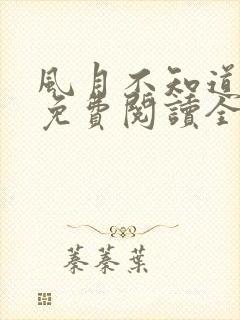 風月不知道
免費閱讀全
蓁蓁葉